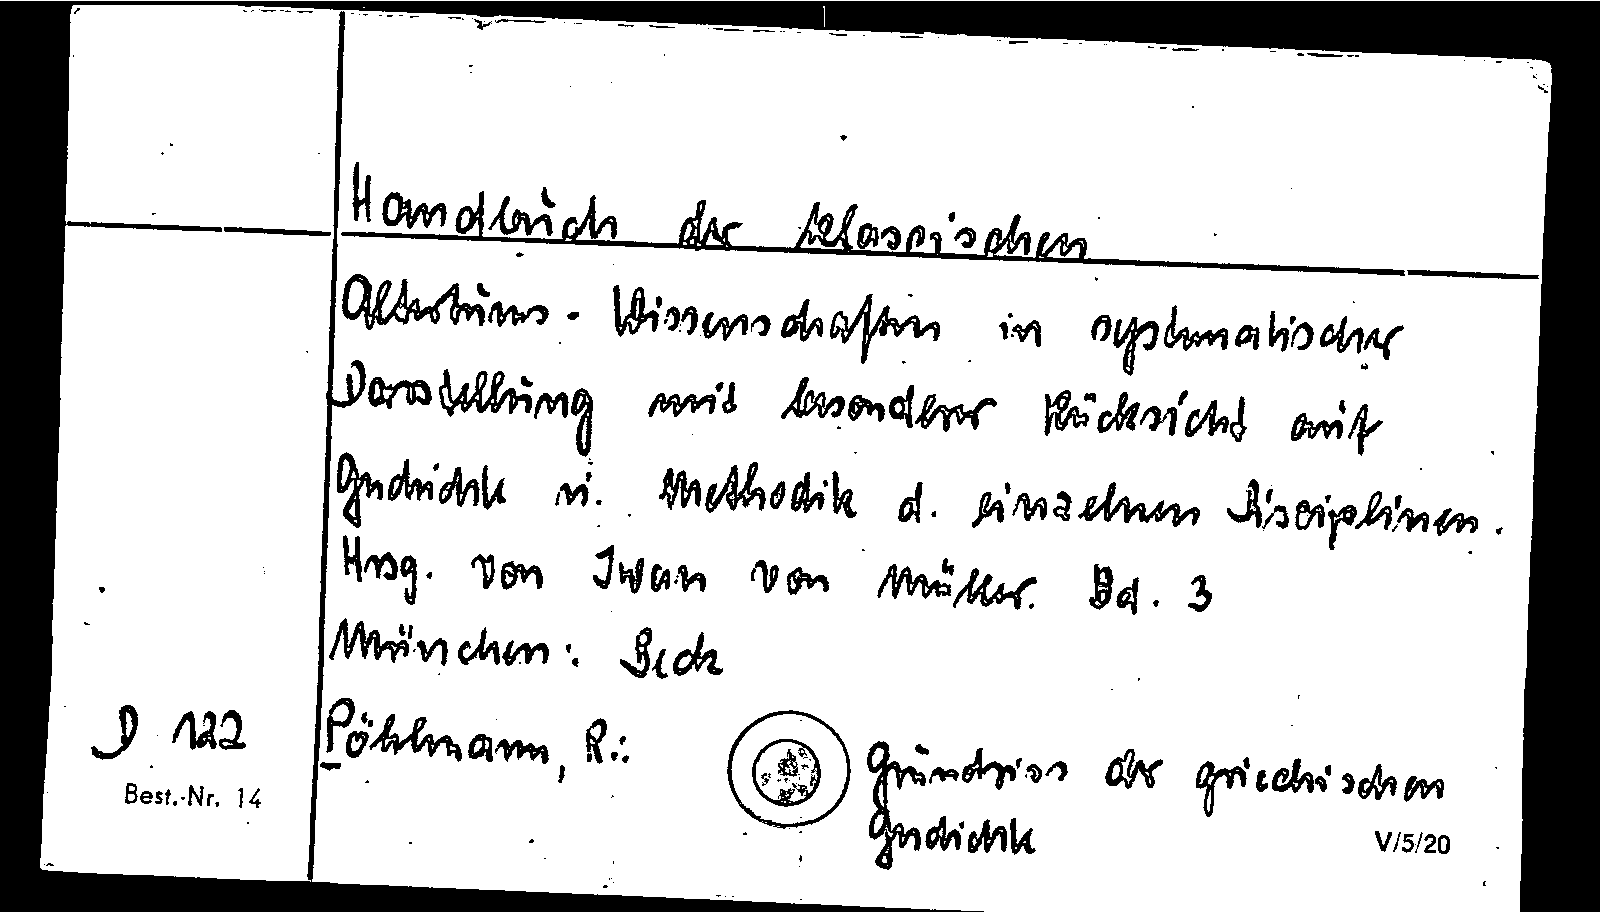 Handbuch der klassischen
Altertums-Wissenschaften in systematischer
Darstellung mit besonderer Rücksicht auf
Geschichte u. Methodik d. einzelnen Disciplinen.
Hrsg. von Iwan von Müller. Bd. 3
München: Beck
D 122 Pöhlmann, R.: Grundriss der griechischen
Geschichte
Best.-Nr. 14
V/5/20